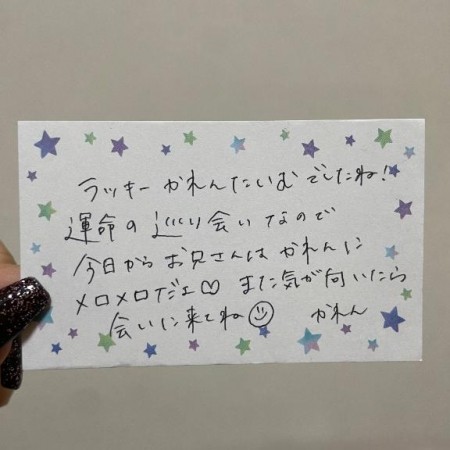 ラッキーかれんたいむでしたね!
運命の巡り会いなので
今日からお兄さんはかれんに
メロメロだェ♡ また気が向いたら
会いに来てね☺ かれん